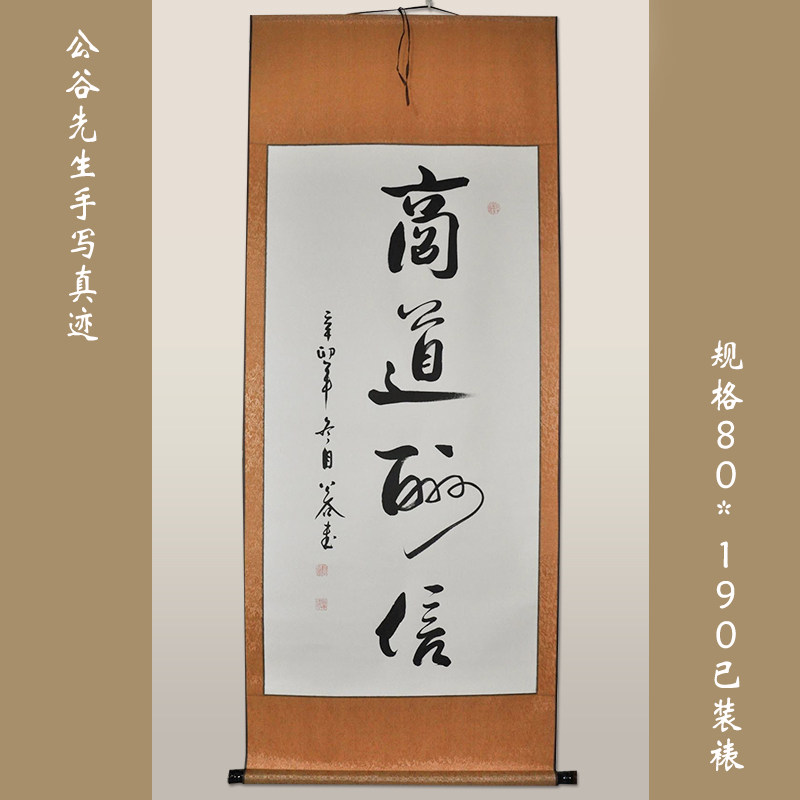 公谷先生手写真迹
商道酬信
辛卯年冬月公谷书
规格80*190已装裱